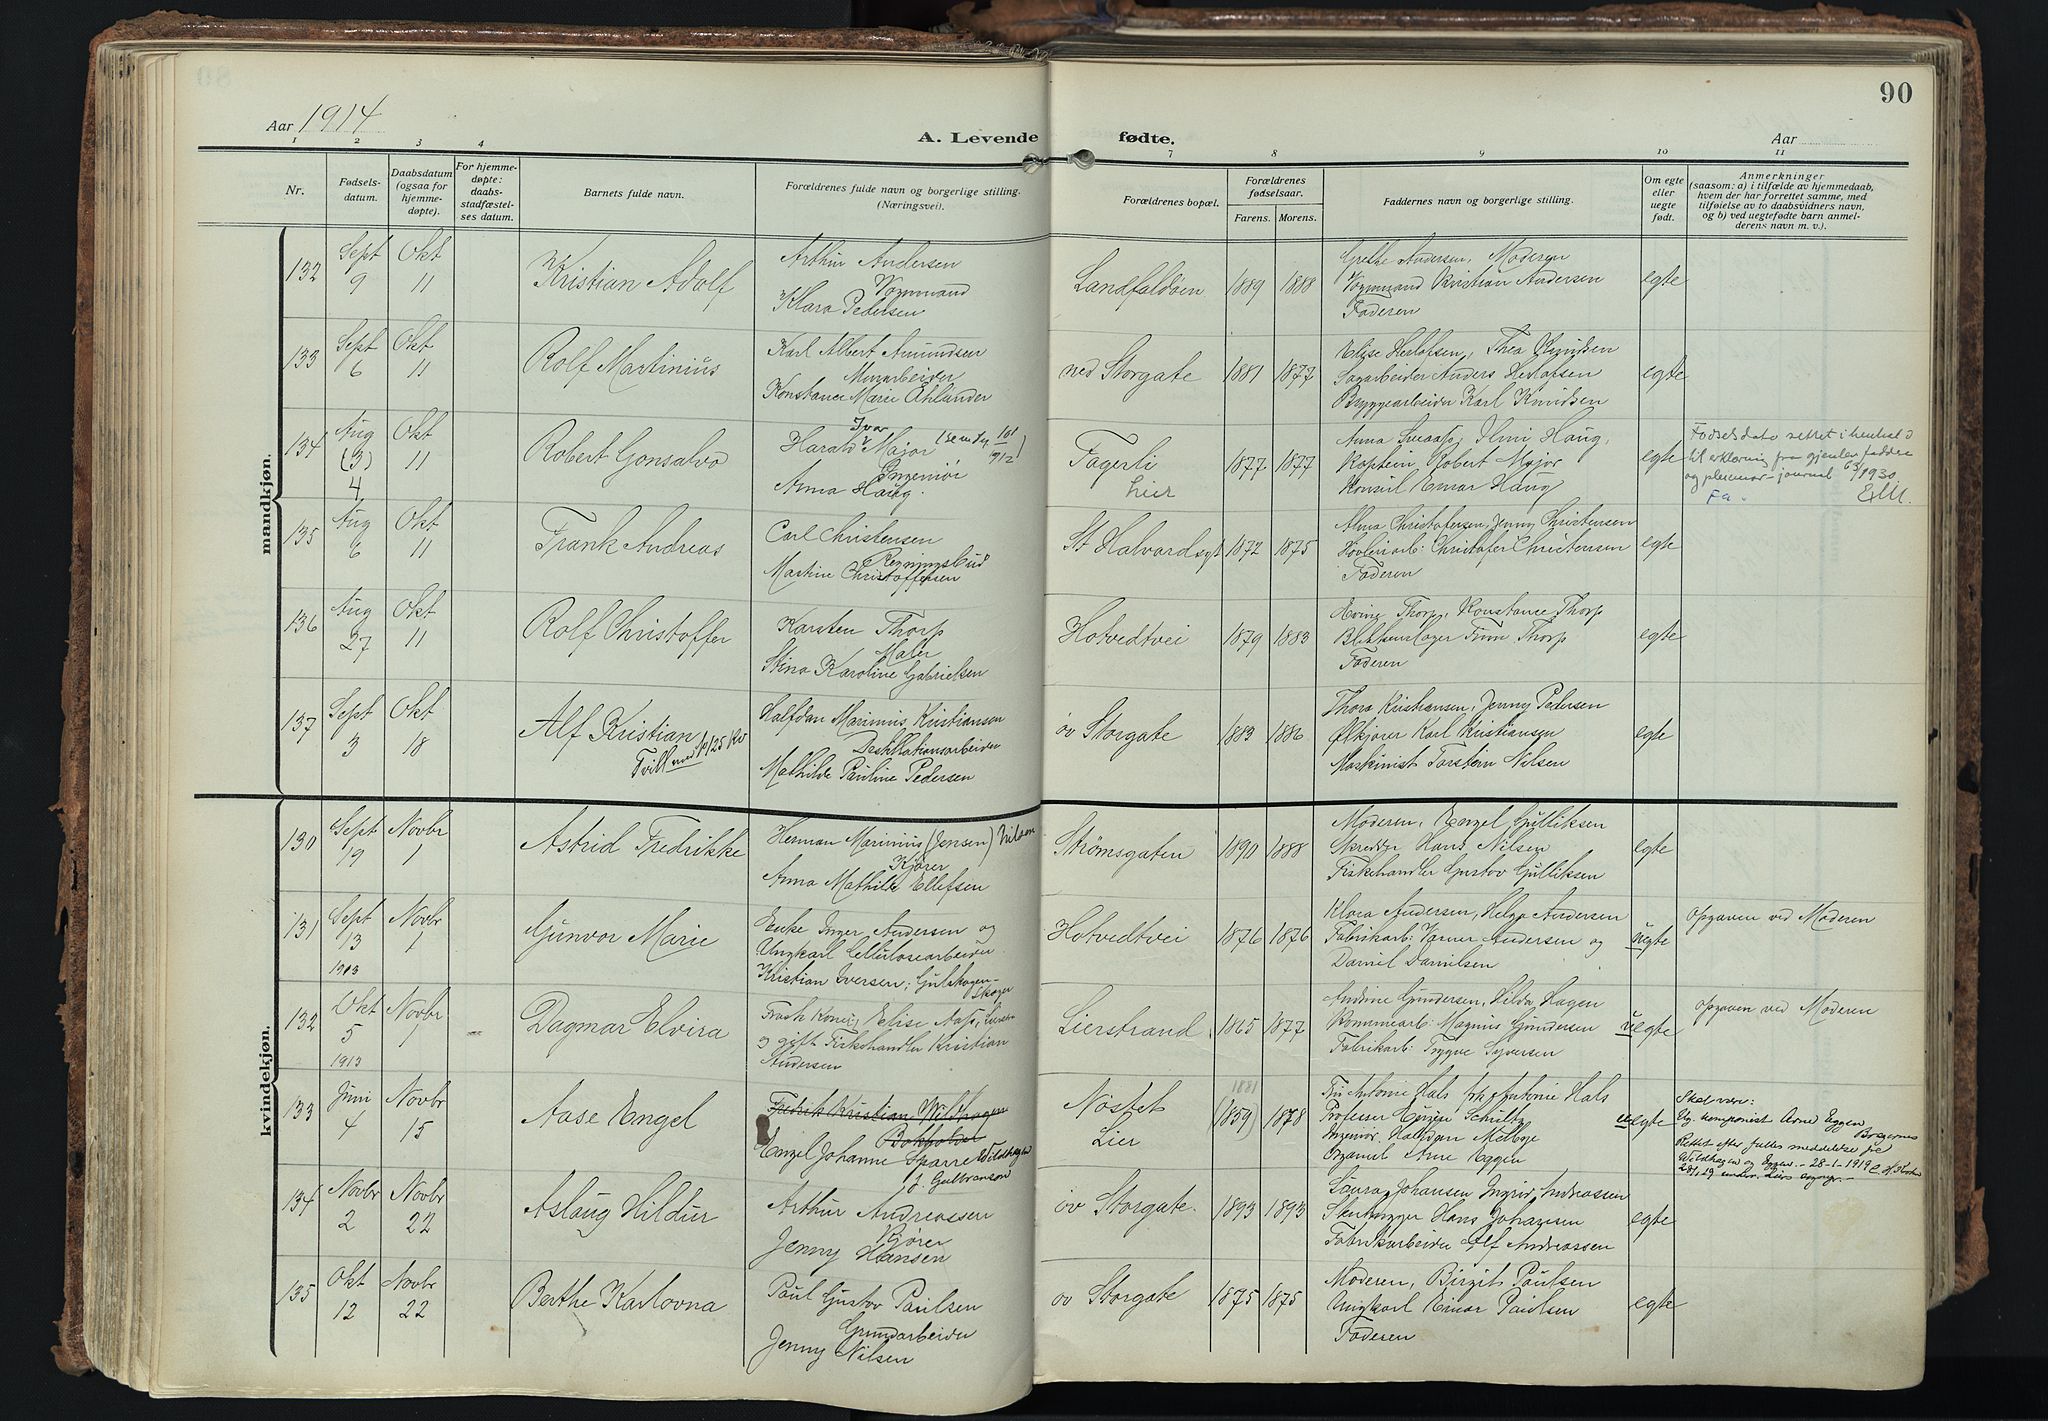 90
Aar 1914
A. Levende fødte.
Aar
1 2 3 4 7 8 9 10 11
Nr.
Fødsels-
datum.
Daabsdatum
(ogsaa for
hjemme-
døpte).
For hjemme-
døpte:
daabs-
stadfæstel-
ses datum.
Barnets fulde navn.
Forældrenes fulde navn og borgerlige stilling.
(Næringsvei).
Forældrenes bopæl.
Forældrenes
fødselsaar.
Farens. Morens.
Faddernes navn og borgerlige stilling.
Om egte
eller
uegte
født.
Anmerkninger
(saasom: a) i tilfælde av hjemmedaab,
hvem der har forrettet samme, med
tilføielse av to daabsvidners navn,
og b) ved uegtefødte barn anmel-
derens navn m. v.).
mandkjøn.
132
Sept
9
Okt
11
Kristian Adolf
Arthur Andersen
Vognmand
Klara Pedersen
Landfaldøen
1889 1888
Grethe Andersen, Moderen
Vognmand Kristian Andersen
Faderen
egte
133
Sept
6
Okt
11
Rolf Martinius
Karl Albert Amundsen
Murarbeider
Konstance Marie Åhlander
ned Storgate
1881 1877
Elise Herlofsen, Thea Knudsen
Sagarbeider Anders Herlofsen
Bryggearbeider Karl Knudsen
egte
134
Aug
(3)
4
Okt
11
Robert Gonsalvo
Ivar
Harald Major
Ingeniør
Anna Haug.
Fagerli
Lier
1877 1877
Anna Svaasp, Ilmi Haug,
Kaptein Robert Major
Konsul Einar Haug
egte
Fødselsdato rettet i henhold
til erklæring fra gjenlev. fadder
og plesemor-journal 63/1930
135
Aug
6
Okt
11
Frank Andreas
Carl Christensen
Regningsbud
Martine Christoffersen
St Halvardsgt
1872 1875
Alma Christofersen, Jenny Christensen
Høvleriarb: Christofer Christensen
Faderen
egte
136
Aug
27
Okt
11
Rolf Christoffer
Karsten Thorp
Maler
Stina Karoline Gabrielsen
Hotvedtvei
1879 1883
Thorp, Konstance Thorp
Blikkenslager Finn Thorp
Faderen
egte
137
Sept
3
Okt
18
Alf Kristian
Tvill med No 125 Kv
Halfdan Marinius Kristiansen
Destillationsarbeider
Mathilde Pauline Pedersen
öv Storgate
1883 1886
Thora Kristiansen, Jenny Pedersen
Ølkjører Karl Kristiansen
Maskinist Torstein Nilsen
egte
kvindekjøn.
130
Sept
19
Novbr
1
Astrid Fredrikke
Herman Marinius (Jensen) Nilsen
Kjører
Anna Mathilde Ellefsen
Strømsgaten
1890 1888
Moderen, Engel Gulliksen
Skrædder Hans Nilsen
Fiskehandler Gustav Gulliksen
egte
131
Sept
13
1913
Novbr
1
Gunvor Marie
Enke Inger Andersen og
Ungkarl Cellulosearbeider
Kristian Iversen, Gulskogen
Skoger
Hotvedtvei
1876 1876
Klara Andersen, Helga Andersen
Fabrikarb: Varner Andersen og
Daniel Danielsen
uegte
Opgaven ved Moderen
132
Okt
5
1913
Novbr
1
Dagmar Elvira
Frask. Kone, Elise Aas, Lierstr.
og gift Fiskehandler Kristian
Andersen
Lierstrand
1865 1877
Andrine Gundersen, Hilda Hagen
Kommunearb: Magnus Gundersen
Fabrikarb: Trygve Syversen
uegte
Opgaven ved Moderen
133
Juni
4
Novbr
15
Aase Engel
Fredrik Kristian Wildhagen
Bokholder
Engel Johanne Sparre Wildhagen
f. Gulbranson
Nøstet
Lier
1881
(1859) 1878
Fru Antonie Hals frk Antonie Hals
Professor Schultz
Ingeniør. Halfdan Melbye
Organist Arne Eggen
uegte
Skal være:
Ug. komponist Arne Eggen
Bragernes
Rettet efter fælles meddelelse fra
Wildhagen og Eggen. - 28-1-1919
134
Novbr
2
Novbr
22
Aslaug Hildur
Arthur Andreassen
Kjører
Jenny Hansen
öv Storgate.
1893 1893
Laura Johansen, Ingrid Andreassen
Stenhugger Hans Johansen
Fabrikarbeider Alf Andreassen
egte
135
Okt
12
Novbr
22
Berthe Karlovna
Paul Gustav Paulsen
Grundarbeider
Jenny Nilsen
öv Storgate
1875 1875
Moderen, Birgit Paulsen
Ungkarl Einar Paulsen
Faderen
egte